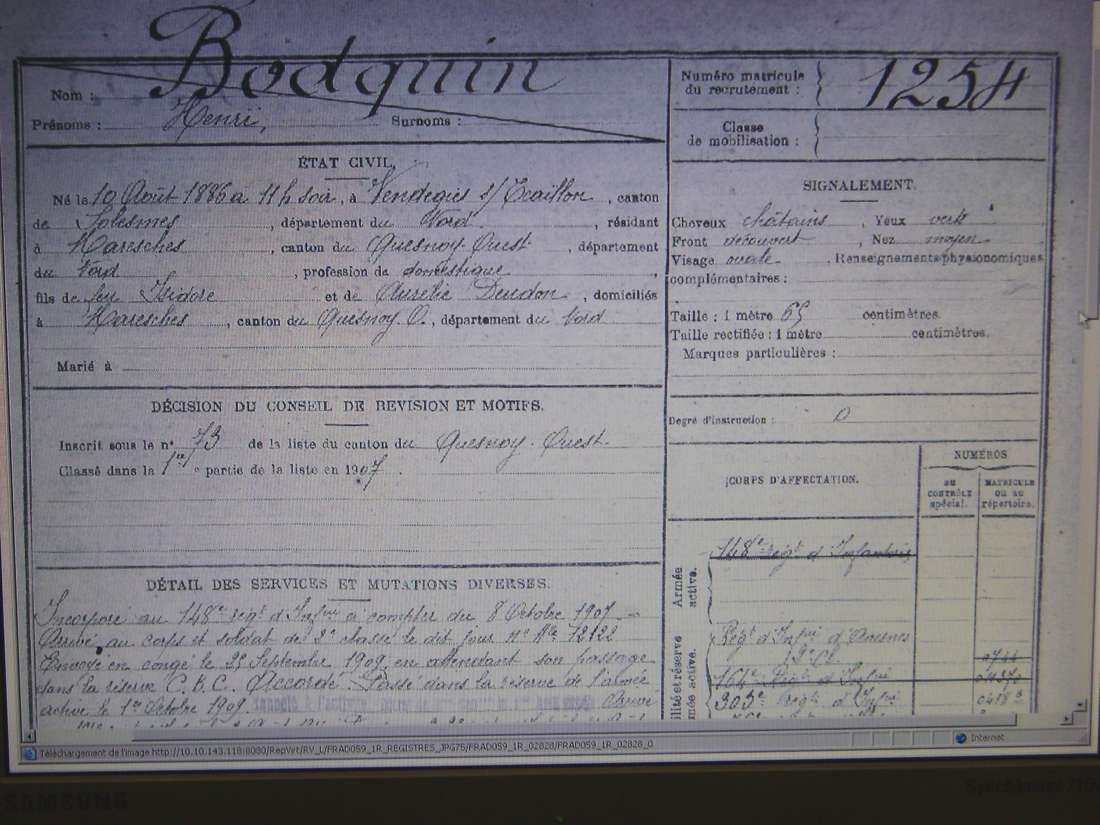 Nom : Bodquin
Prénoms : Henri, Surnoms :
Numéro matricule du recrutement : 1254
Classe de mobilisation :
ÉTAT CIVIL.
Né le 10 Août 1886 à 11 h soir, à Vendegies s/ Ecaillon, canton
de Solesmes, département du Nord, résidant
à Maresches, canton du Quesnoy-Ouest, département
du Nord, profession de domestique
fils de feu Isidore et de Aurélie Deudon, domiciliés
à Maresches, canton du Quesnoy O., département du Nord
Marié à
SIGNALEMENT.
Cheveux châtains, Yeux verts
Front découvert, Nez moyen
Visage ovale, Renseignements physionomiques
complémentaires :
Taille : 1 mètre 65 centimètres.
Taille rectifiée : 1 mètre centimètres.
Marques particulières :
Degré d'instruction : 0
DÉCISION DU CONSEIL DE REVISION ET MOTIFS.
Inscrit sous le n° 73 de la liste du canton du Quesnoy-Ouest
Classé dans la 1re partie de la liste en 1907.
CORPS D'AFFECTATION.
NUMÉROS
AU CONTRÔLE spécial.
MATRICULE OU AU répertoire.
Armée active.
148e régt d'Infanterie
Régt d'Infrie d'Avesnes
303e Régt d'Infrie
DÉTAIL DES SERVICES ET MUTATIONS DIVERSES.
Incorporé au 148e régt d'Infrie à compter du 8 Octobre 1907.
Arrivé au corps et soldat de 2e classe le dit jour No Mle 72122
Envoyé en congé le 25 Septembre 1909 en attendant son passage
dans la réserve C.B.C. Accordé. Passé dans la réserve de l'armée
active le 1er Octobre 1909.
Téléchargement de l'image http://10.10.143.118:8080/RepVirt/RV_L/FRAD059_1R_REGISTRES_JPG75/FRAD059_1R_02828/FRAD059_1R_02828_0
Internet
SAMSUNG